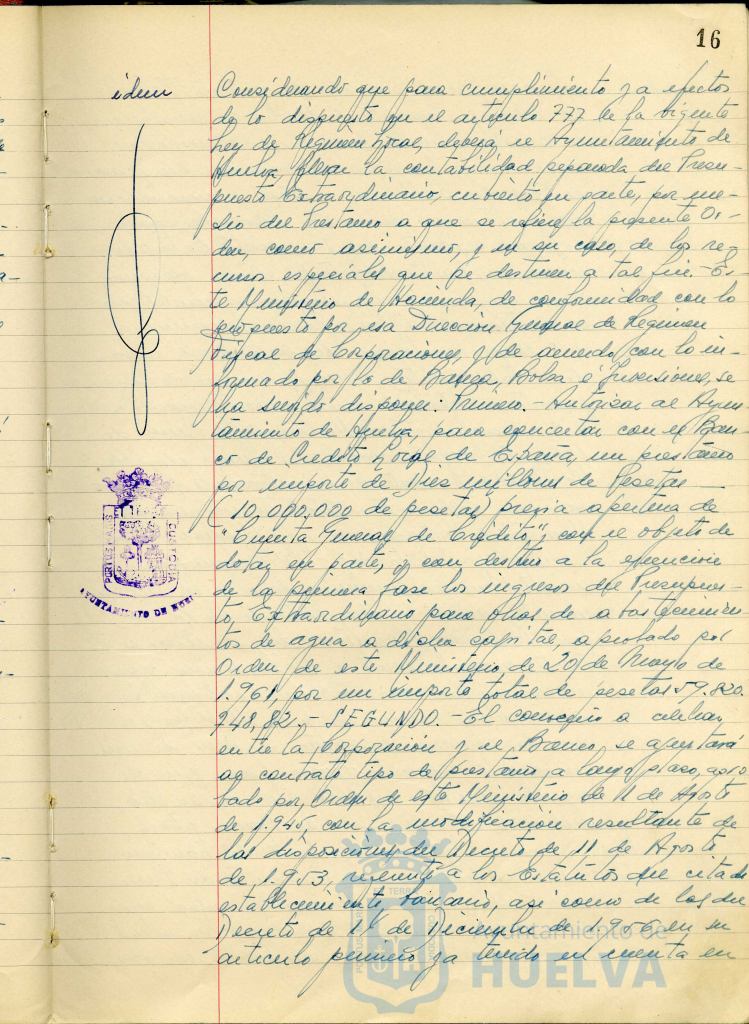 16
idem
Considerando que para cumplimiento y a efectos
de lo dispuesto en el articulo 777 de la vigente
Ley de Regimen Local, deberá el Ayuntamiento de
Huelva, llevar la contabilidad separada del Presu-
puesto Extraordinario, cubierto en parte, por me-
dio del Prestamo a que se refiere la presente Or-
den, como asimismo, y en su caso, de los re-
cursos especiales que se destinen a tal fin.- Es-
te Ministerio de Hacienda, de conformidad con lo
propuesto por esa Dirección General de Regimen
Fiscal de Corporaciones y de acuerdo con lo in-
formado por la de Banca, Bolsa e Inversiones, se
ha servido disponer: Primero.- Autorizar al Ayun-
tamiento de Huelva, para concertar con el Ban-
co de Credito Local de España, un prestamo
por importe de Diez millones de Pesetas
(10,000,000 de pesetas) previa apertura de
"Cuenta General de Crédito", con el objeto de
dotar en parte, y con destino a la ejecución
de la primera fase los ingresos del Presupues-
to, Extraordinario para obras de abastecimien-
tos de agua a dicha capital, aprobado por
Orden de este Ministerio de 20 de Mayo de
1.961, por un importe total de pesetas 59.820.
748,82.- SEGUNDO.- El convenio a celebrar
entre la Corporación y el Banco, se ajustará
al contrato tipo de prestamo a largo plazo, apro
bado por Orden de este Ministerio de 11 de Agosto
de 1.945, con la modificación resultante de
las disposiciones del Decreto de 11 de Agosto
de 1.953, referente a los Estatutos del citado
establecimiento bancario, así como de los del
Decreto de 1º de Diciembre de 1.956 en su
articulo primero ya tenido en cuenta en
PORTUS MARIS
CUSTODIA
AYUNTAMIENTO DE HUELVA
Ayuntamiento de
HUELVA